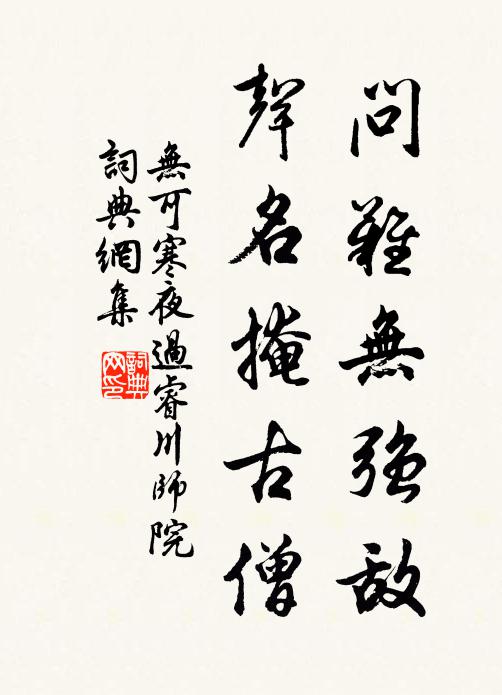 問難無強敵
聲名掩古僧
無可寒夜過睿川師院
詞典網集
詞典网印